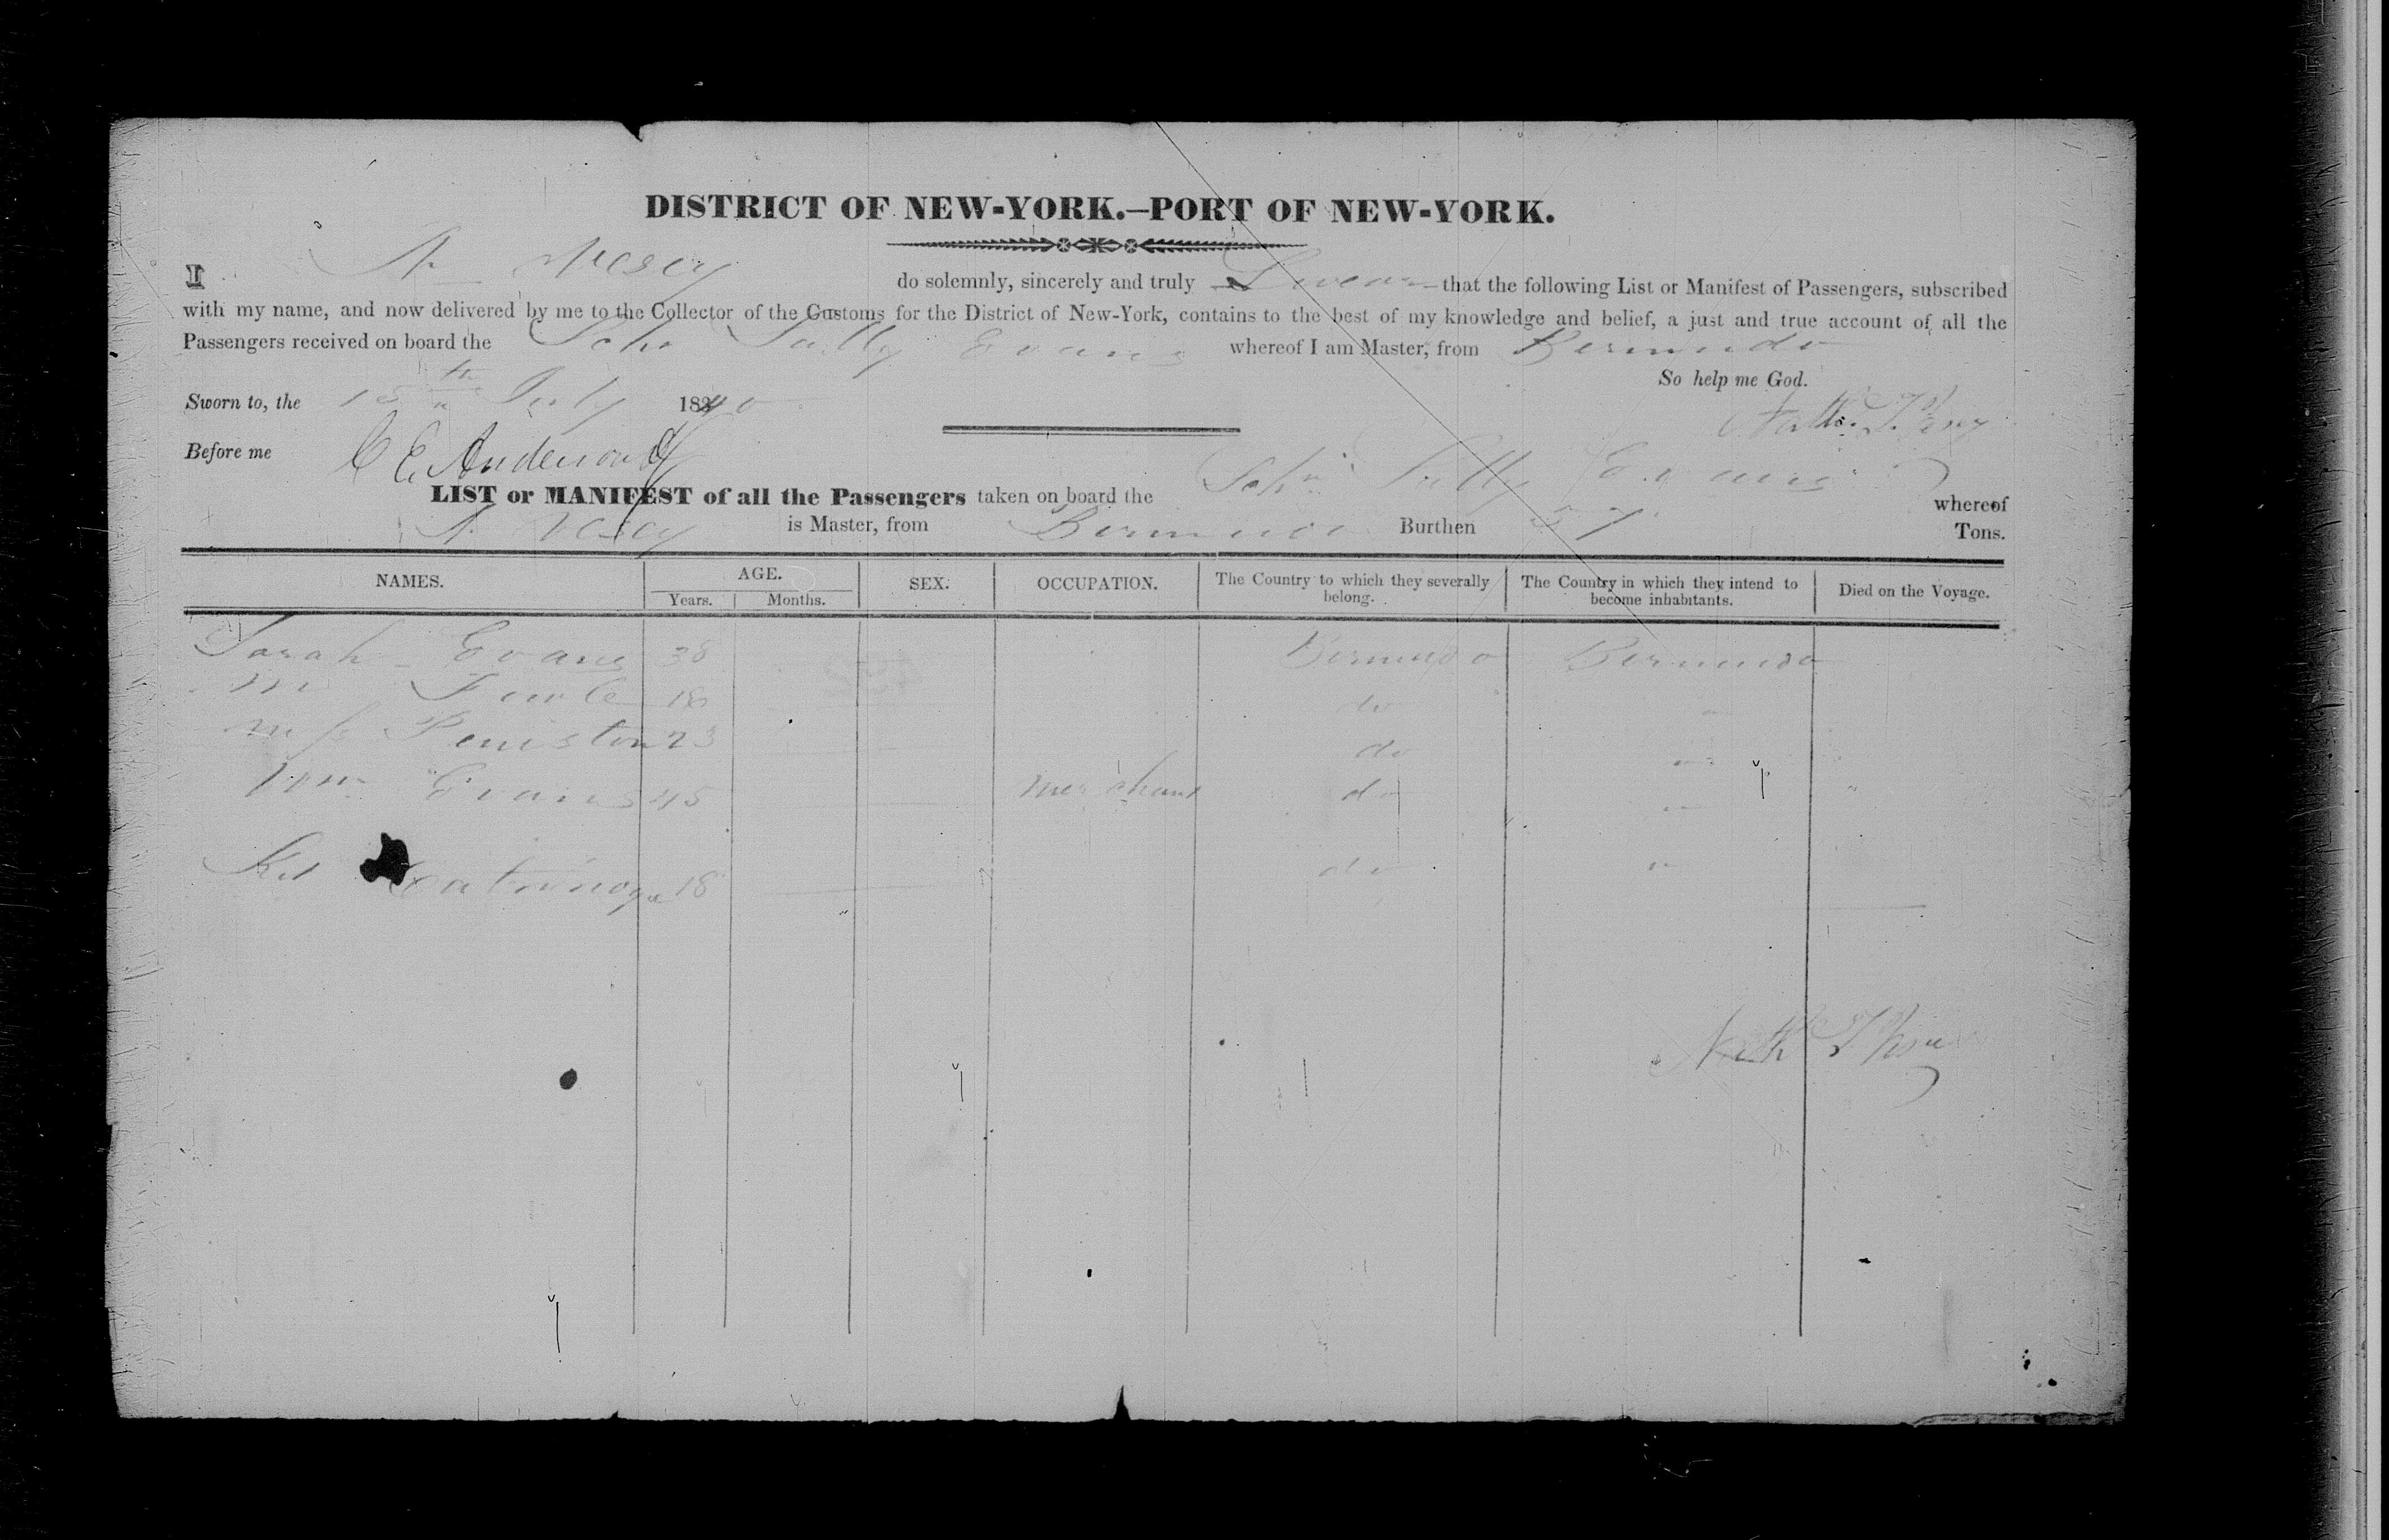 DISTRICT OF NEW-YORK.—PORT OF NEW-YORK.
I N Vesey do solemnly, sincerely and truly Swear that the following List or Manifest of Passengers, subscribed
with my name, and now delivered by me to the Collector of the Customs for the District of New-York, contains to the best of my knowledge and belief, a just and true account of all the
Passengers received on board the Schr Sally Evans whereof I am Master, from Bermuda
So help me God.
Sworn to, the 15th July 1840
Nathl Vesey
Before me C E Anderson
LIST or MANIFEST of all the Passengers taken on board the Schr Sally Evans whereof
N Vesey is Master, from Bermuda Burthen 57 Tons.
NAMES. AGE. SEX. OCCUPATION. The Country to which they severally belong. The Country in which they intend to become inhabitants. Died on the Voyage.
Years. Months.
Sarah Evans 38 Bermuda Bermuda
18 do "
Miss Peniston 23 do "
Wm Evans 45 merchant do "
18 do "
Nathl Vesey